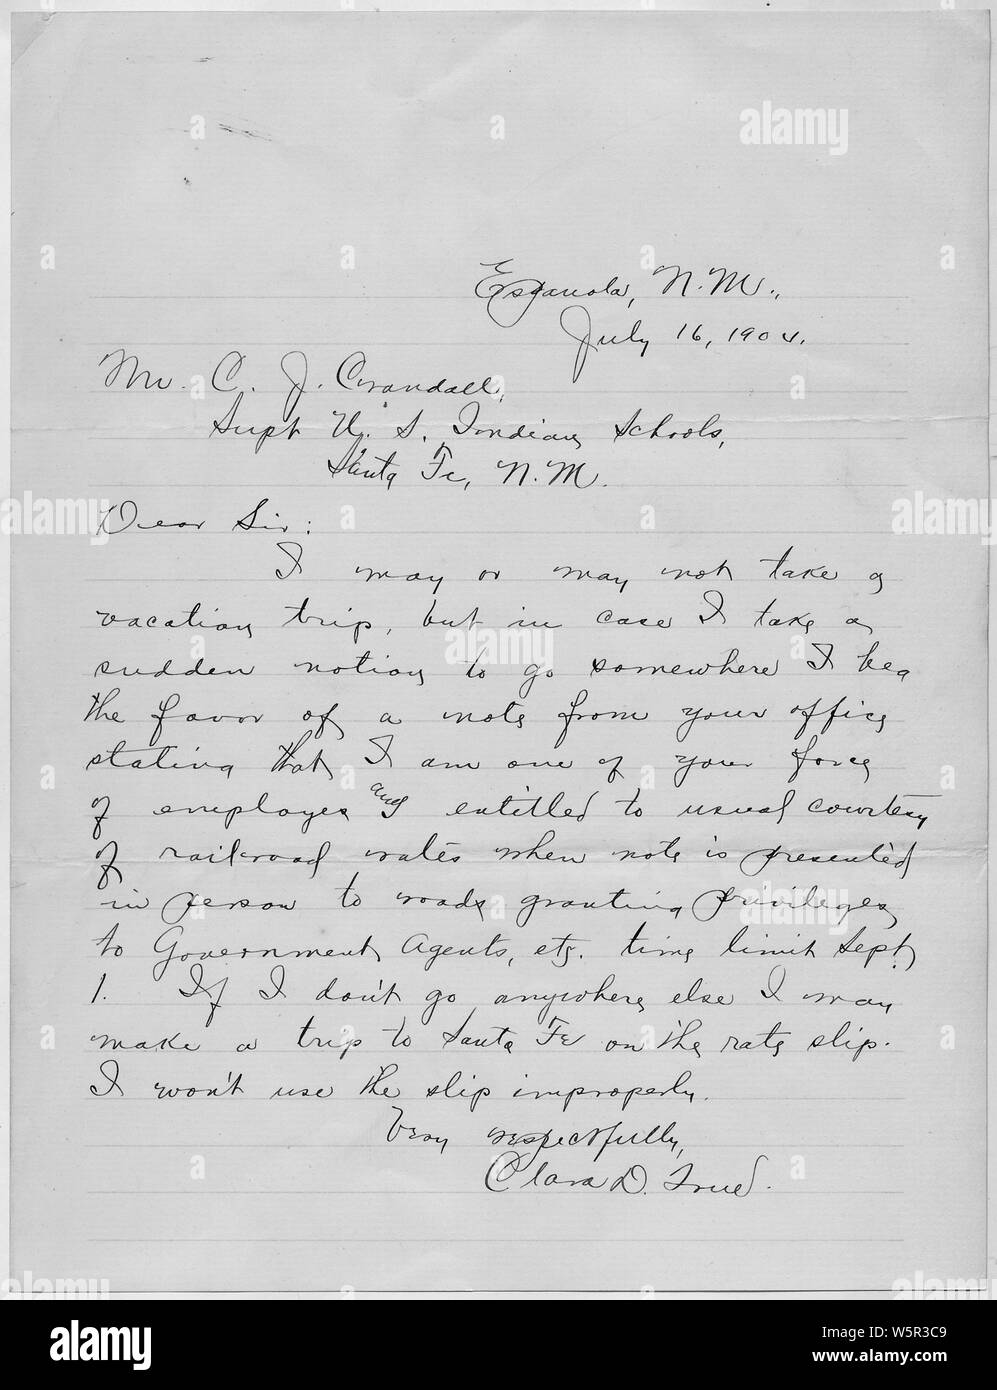 Espanola, N.M.,
July 16, 1904.
Mr. C. J. Crandall,
Supt U. S. Indian Schools,
Santa Fe, N.M.
Dear Sir:
I may or may not take a
vacation trip, but in case I take a
sudden notion to go somewhere I beg
the favor of a note from your office
stating that I am one of your force
of employes and entitled to usual courtesy
of railroad rates when note is presented
in person to roads granting privileges
to Government Agents, etc. time limit Sept.
1. If I don't go anywhere else I may
make a trip to Santa Fe on the rate slip.
I won't use the slip improperly.
Very respectfully,
Clara D. True.
alamy
Image ID: W5R3C9
www.alamy.com